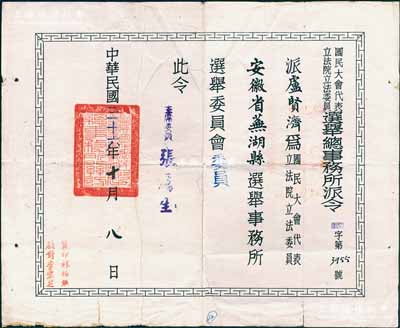 國民大會代表
立法院立法委員
選舉總事務所派令
字第3955號
派盧賢濟為國民大會代表
立法院立法委員
安徽省蕪湖縣選舉事務所
選舉委員會委員
此令
張
生
中華民國三十六年十月八日